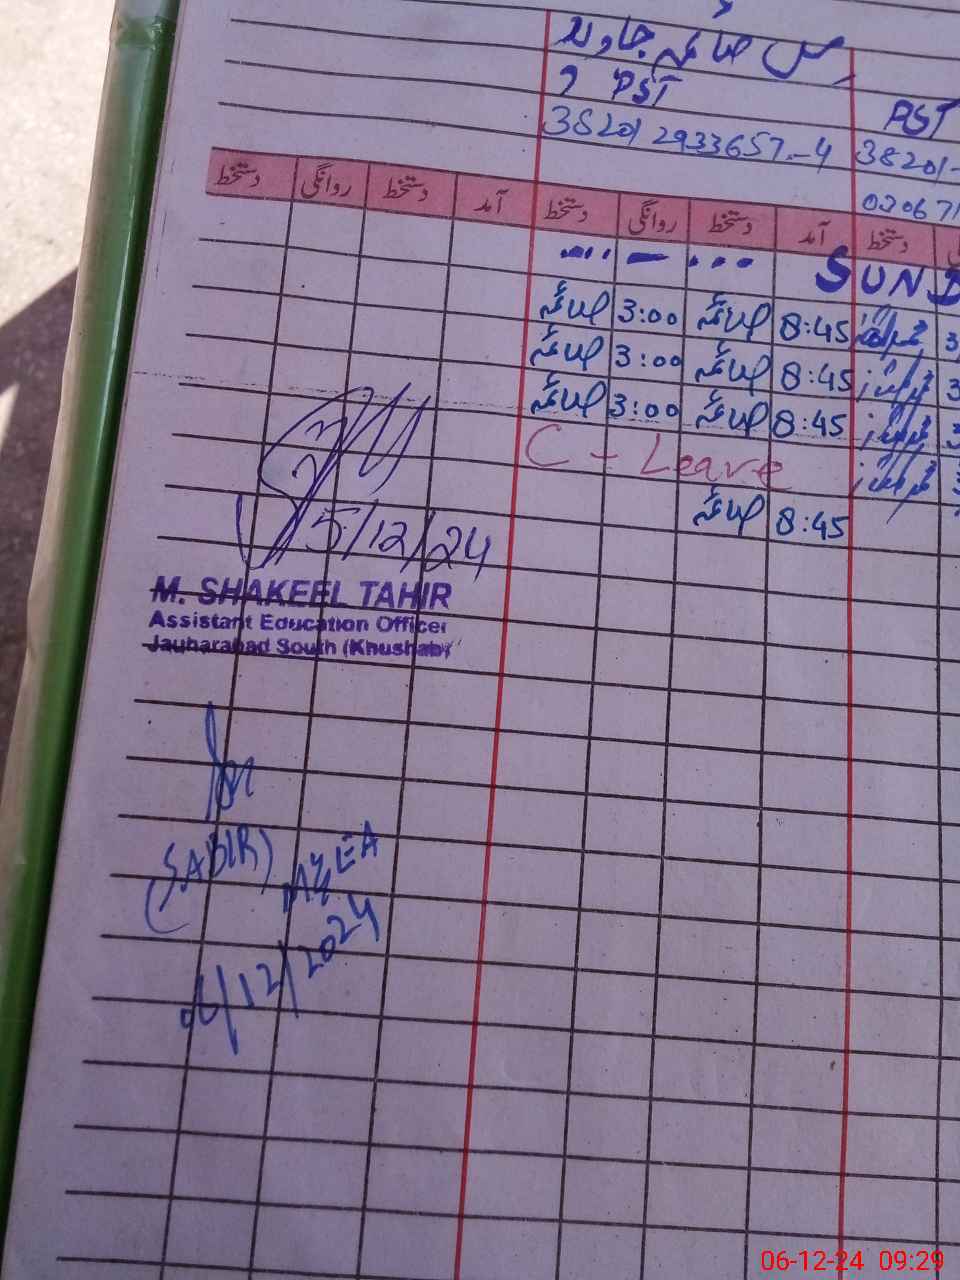 مس صائمہ جاوید
PST
38201 2933657-4 38201-
PST
02067
آمد دستخط روانگی دستخط آمد دستخط روانگی دستخط
دستخط
SUND
8:45 صائمہ 3:00 صائمہ
8:45 صائمہ 3:00 صائمہ
8:45 صائمہ 3:00 صائمہ
C - Leave
8:45 صائمہ
5/12/24
M. SHAKEEL TAHIR
Assistant Education Officer
Jauharabad South (Khushab)
(SABIR)
MEA
06/12/2024
06-12-24 09:29